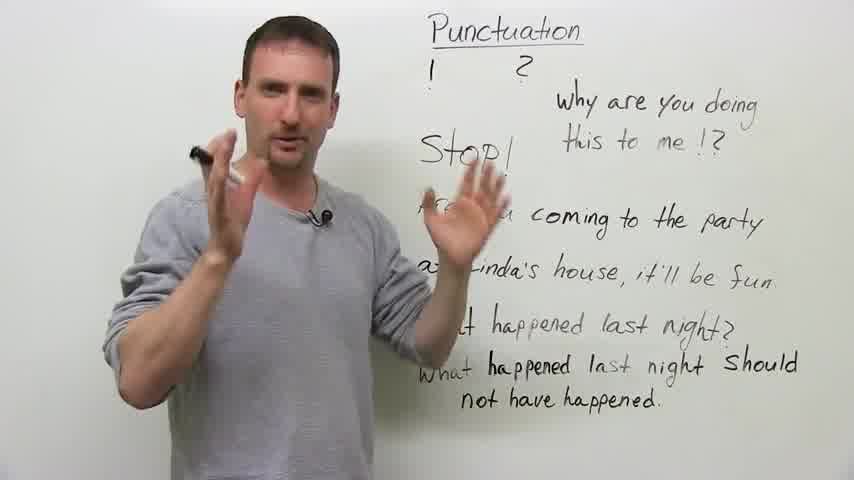 Punctuation
! ?
Why are you doing
this to me!?
Stop!
coming to the party
Linda's house, it'll be fun
happened last night?
What happened last night should
not have happened.